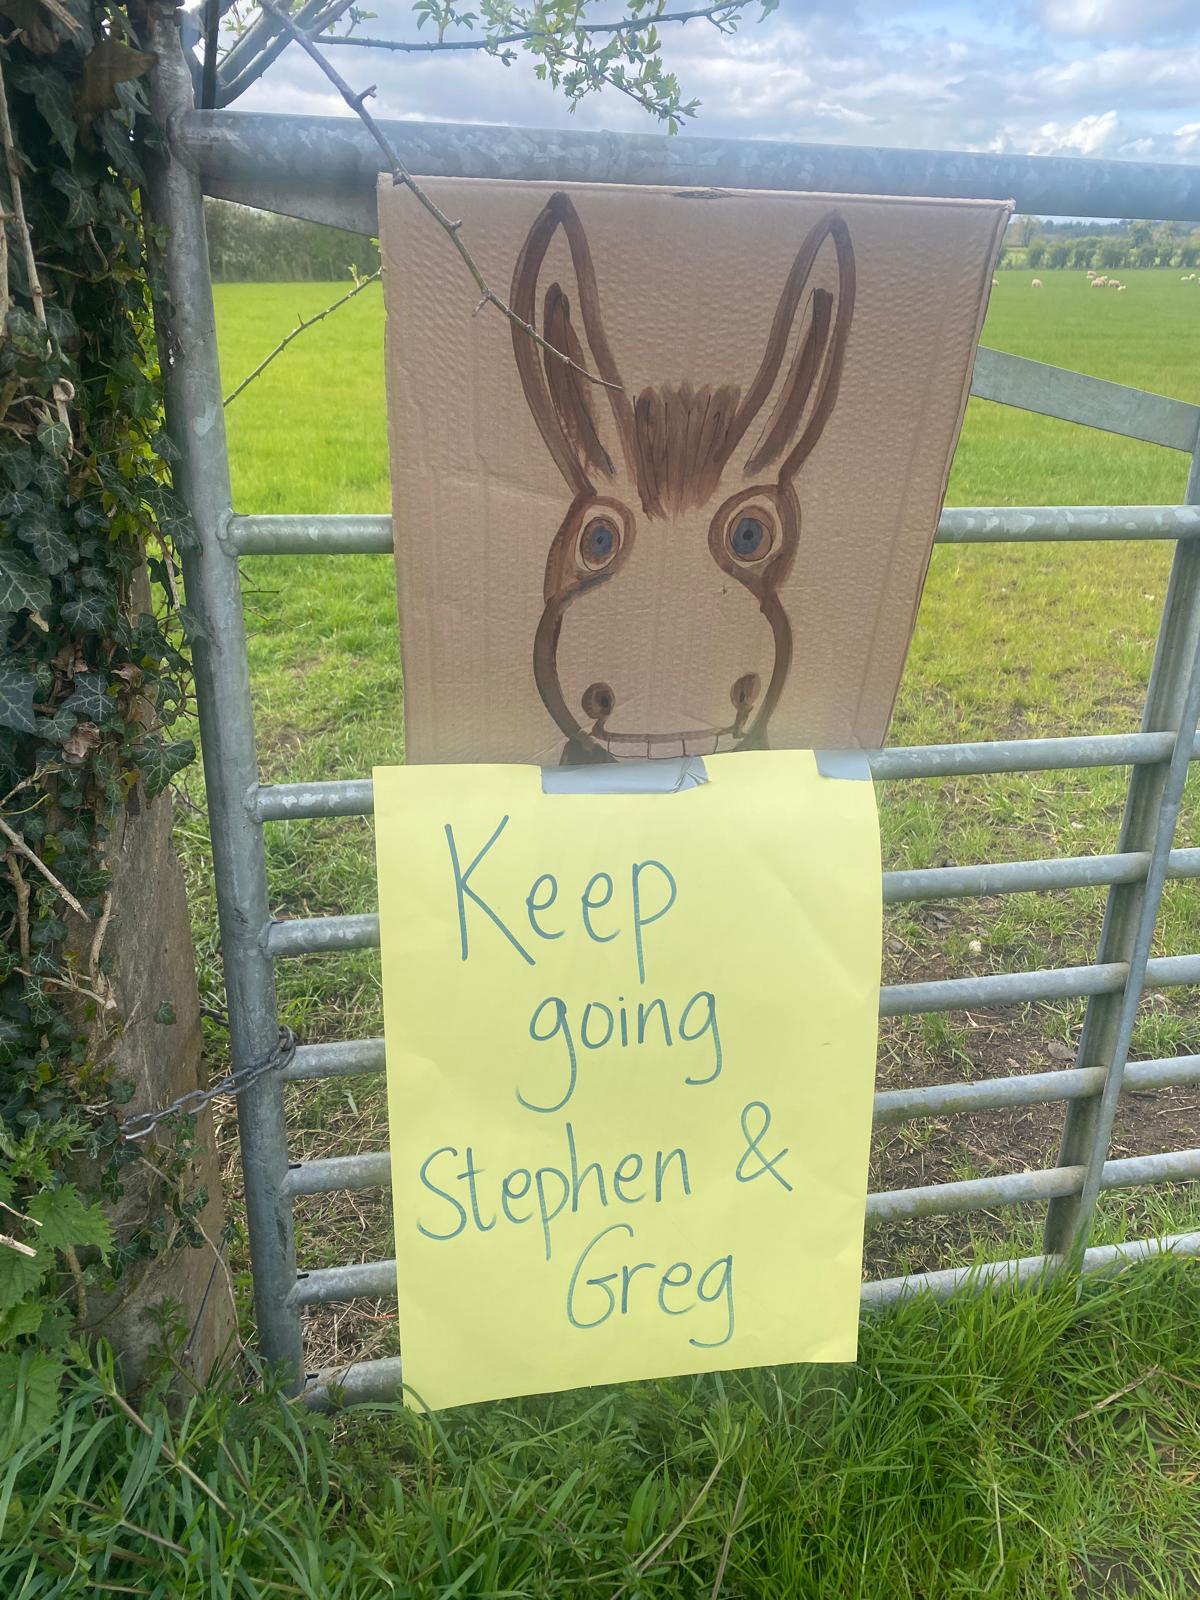 Keep
going
Stephen &
Greg